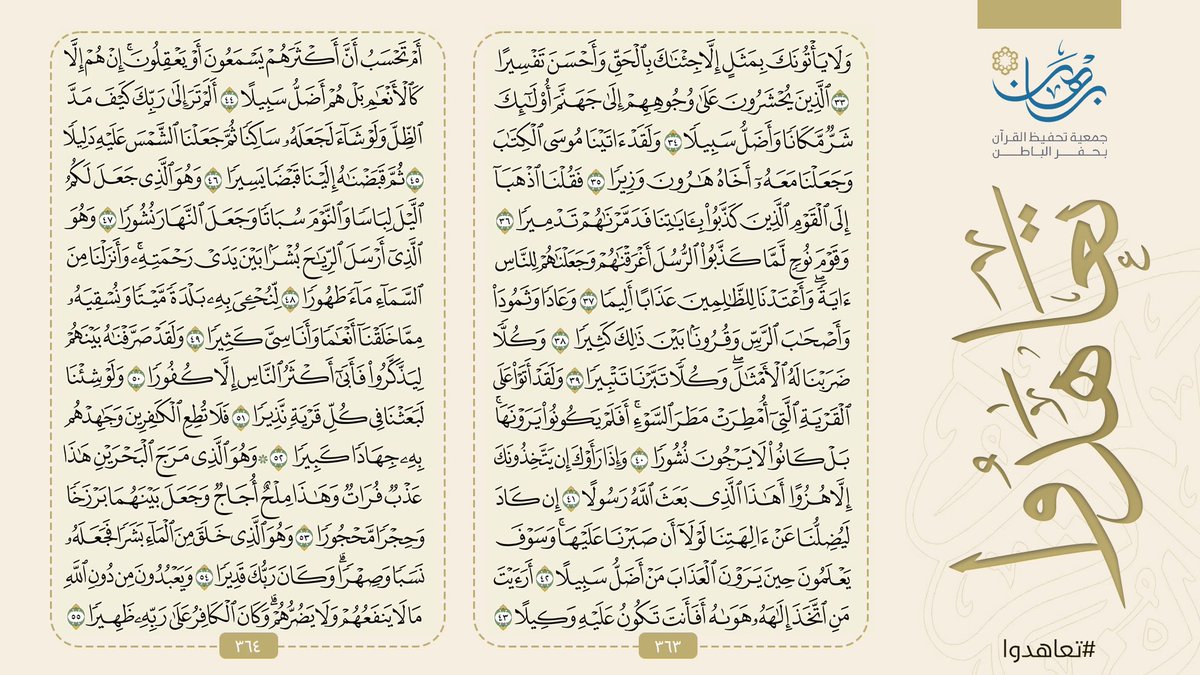 برهان
جمعية تحفيظ القرآن
بحفر الباطن
تعاهدوا
#تعاهدوا
وَلَا يَأْتُونَكَ بِمَثَلٍ إِلَّا جِئْنَٰكَ بِٱلْحَقِّ وَأَحْسَنَ تَفْسِيرًا
٣٣ ٱلَّذِينَ يُحْشَرُونَ عَلَىٰ وُجُوهِهِمْ إِلَىٰ جَهَنَّمَ أُو۟لَٰٓئِكَ
شَرٌّ مَّكَانًا وَأَضَلُّ سَبِيلًا ٣٤ وَلَقَدْ ءَاتَيْنَا مُوسَى ٱلْكِتَٰبَ
وَجَعَلْنَا مَعَهُۥٓ أَخَاهُ هَٰرُونَ وَزِيرًا ٣٥ فَقُلْنَا ٱذْهَبَآ
إِلَى ٱلْقَوْمِ ٱلَّذِينَ كَذَّبُوا۟ بِـَٔايَٰتِنَا فَدَمَّرْنَٰهُمْ تَدْمِيرًا ٣٦
وَقَوْمَ نُوحٍ لَّمَّا كَذَّبُوا۟ ٱلرُّسُلَ أَغْرَقْنَٰهُمْ وَجَعَلْنَٰهُمْ لِلنَّاسِ
ءَايَةً ۖ وَأَعْتَدْنَا لِلظَّٰلِمِينَ عَذَابًا أَلِيمًا ٣٧ وَعَادًا وَثَمُودَا۟
وَأَصْحَٰبَ ٱلرَّسِّ وَقُرُونًۢا بَيْنَ ذَٰلِكَ كَثِيرًا ٣٨ وَكُلًّا
ضَرَبْنَا لَهُ ٱلْأَمْثَٰلَ ۖ وَكُلًّا تَبَّرْنَا تَتْبِيرًا ٣٩ وَلَقَدْ أَتَوْا۟ عَلَى
ٱلْقَرْيَةِ ٱلَّتِىٓ أُمْطِرَتْ مَطَرَ ٱلسَّوْءِ ۚ أَفَلَمْ يَكُونُوا۟ يَرَوْنَهَا ۚ
بَلْ كَانُوا۟ لَا يَرْجُونَ نُشُورًا ٤٠ وَإِذَا رَأَوْكَ إِن يَتَّخِذُونَكَ
إِلَّا هُزُوًا أَهَٰذَا ٱلَّذِى بَعَثَ ٱللَّهُ رَسُولًا ٤١ إِن كَادَ
لَيُضِلُّنَا عَنْ ءَالِهَتِنَا لَوْلَآ أَن صَبَرْنَا عَلَيْهَا ۚ وَسَوْفَ
يَعْلَمُونَ حِينَ يَرَوْنَ ٱلْعَذَابَ مَنْ أَضَلُّ سَبِيلًا ٤٢ أَرَءَيْتَ
مَنِ ٱتَّخَذَ إِلَٰهَهُۥ هَوَىٰهُ أَفَأَنتَ تَكُونُ عَلَيْهِ وَكِيلًا ٤٣
٣٦٣
أَمْ تَحْسَبُ أَنَّ أَكْثَرَهُمْ يَسْمَعُونَ أَوْ يَعْقِلُونَ ۚ إِنْ هُمْ إِلَّا
كَٱلْأَنْعَٰمِ بَلْ هُمْ أَضَلُّ سَبِيلًا ٤٤ أَلَمْ تَرَ إِلَىٰ رَبِّكَ كَيْفَ مَدَّ
ٱلظِّلَّ وَلَوْ شَآءَ لَجَعَلَهُۥ سَاكِنًا ثُمَّ جَعَلْنَا ٱلشَّمْسَ عَلَيْهِ دَلِيلًا
٤٥ ثُمَّ قَبَضْنَٰهُ إِلَيْنَا قَبْضًا يَسِيرًا ٤٦ وَهُوَ ٱلَّذِى جَعَلَ لَكُمُ
ٱلَّيْلَ لِبَاسًا وَٱلنَّوْمَ سُبَاتًا وَجَعَلَ ٱلنَّهَارَ نُشُورًا ٤٧ وَهُوَ
ٱلَّذِىٓ أَرْسَلَ ٱلرِّيَٰحَ بُشْرًۢا بَيْنَ يَدَىْ رَحْمَتِهِۦ ۚ وَأَنزَلْنَا مِنَ
ٱلسَّمَآءِ مَآءً طَهُورًا ٤٨ لِّنُحْـِۧىَ بِهِۦ بَلْدَةً مَّيْتًا وَنُسْقِيَهُۥ
مِمَّا خَلَقْنَآ أَنْعَٰمًا وَأَنَاسِىَّ كَثِيرًا ٤٩ وَلَقَدْ صَرَّفْنَٰهُ بَيْنَهُمْ
لِيَذَّكَّرُوا۟ فَأَبَىٰٓ أَكْثَرُ ٱلنَّاسِ إِلَّا كُفُورًا ٥٠ وَلَوْ شِئْنَا
لَبَعَثْنَا فِى كُلِّ قَرْيَةٍ نَّذِيرًا ٥١ فَلَا تُطِعِ ٱلْكَٰفِرِينَ وَجَٰهِدْهُم
بِهِۦ جِهَادًا كَبِيرًا ٥٢ ۞ وَهُوَ ٱلَّذِى مَرَجَ ٱلْبَحْرَيْنِ هَٰذَا
عَذْبٌ فُرَاتٌ وَهَٰذَا مِلْحٌ أُجَاجٌ وَجَعَلَ بَيْنَهُمَا بَرْزَخًا
وَحِجْرًا مَّحْجُورًا ٥٣ وَهُوَ ٱلَّذِى خَلَقَ مِنَ ٱلْمَآءِ بَشَرًا فَجَعَلَهُۥ
نَسَبًا وَصِهْرًا ۗ وَكَانَ رَبُّكَ قَدِيرًا ٥٤ وَيَعْبُدُونَ مِن دُونِ ٱللَّهِ
مَا لَا يَنفَعُهُمْ وَلَا يَضُرُّهُمْ ۗ وَكَانَ ٱلْكَافِرُ عَلَىٰ رَبِّهِۦ ظَهِيرًا ٥٥
٣٦٤